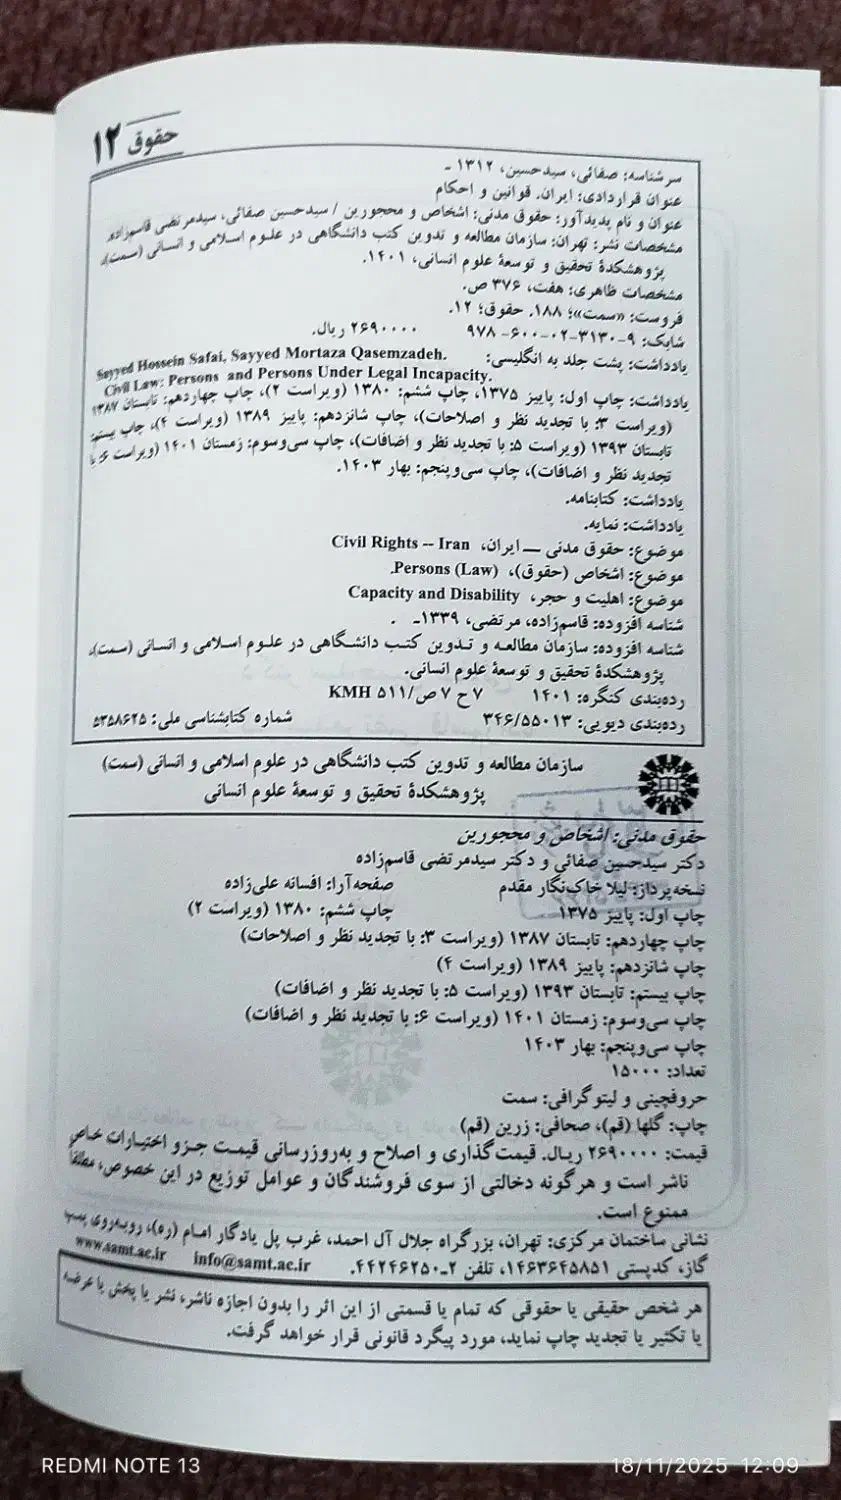 حقوق ۱۲
سرشناسه: صفائی، سیدحسین، ۱۳۱۲ ـ
عنوان قراردادی: ایران. قوانین و احکام
عنوان و نام پدیدآور: حقوق مدنی: اشخاص و محجورین / سیدحسین صفائی، سیدمرتضی قاسم‌زاده.
مشخصات نشر: تهران: سازمان مطالعه و تدوین کتب دانشگاهی در علوم اسلامی و انسانی (سمت)،
پژوهشکدهٔ تحقیق و توسعهٔ علوم انسانی، ۱۴۰۱.
مشخصات ظاهری: هفت، ۳۷۶ ص.
فروست: «سمت»؛ ۱۸۸. حقوق؛ ۱۲.
شابک: ۹-۳۱۳۰-۰۲-۶۰۰-۹۷۸ ۲۶۹۰۰۰۰ ریال.
یادداشت: پشت جلد به انگلیسی: Sayyed Hossein Safai, Sayyed Mortaza Qasemzadeh.
Civil Law: Persons and Persons Under Legal Incapacity.
یادداشت: چاپ اول: پاییز ۱۳۷۵، چاپ ششم: ۱۳۸۰ (ویراست ۲)، چاپ چهاردهم: تابستان ۱۳۸۷
(ویراست ۳: با تجدید نظر و اصلاحات)، چاپ شانزدهم: پاییز ۱۳۸۹ (ویراست ۴)، چاپ بیستم:
تابستان ۱۳۹۳ (ویراست ۵: با تجدید نظر و اضافات)، چاپ سی‌وسوم: زمستان ۱۴۰۱ (ویراست ۶: با
تجدید نظر و اضافات)، چاپ سی‌وپنجم: بهار ۱۴۰۳.
یادداشت: کتابنامه.
یادداشت: نمایه.
موضوع: حقوق مدنی ــ ایران، Civil Rights -- Iran
موضوع: اشخاص (حقوق)، Persons (Law).
موضوع: اهلیت و حجر، Capacity and Disability
شناسه افزوده: قاسم‌زاده، مرتضی، ۱۳۳۹ـ .
شناسه افزوده: سازمان مطالعه و تدوین کتب دانشگاهی در علوم اسلامی و انسانی (سمت)،
پژوهشکدهٔ تحقیق و توسعهٔ علوم انسانی.
رده‌بندی کنگره: ۱۴۰۱ ۷ح ۷ص/۵۱۱ KMH
رده‌بندی دیویی: ۳۴۶/۵۵۰۱۳ شماره کتابشناسی ملی: ۵۳۵۸۶۲۵
سازمان مطالعه و تدوین کتب دانشگاهی در علوم اسلامی و انسانی (سمت)
پژوهشکدهٔ تحقیق و توسعهٔ علوم انسانی
حقوق مدنی: اشخاص و محجورین
دکتر سیدحسین صفائی و دکتر سیدمرتضی قاسم‌زاده
نسخه‌پرداز: لیلا خاک‌نگار مقدم صفحه‌آرا: افسانه علی‌زاده
چاپ اول: پاییز ۱۳۷۵ چاپ ششم: ۱۳۸۰ (ویراست ۲)
چاپ چهاردهم: تابستان ۱۳۸۷ (ویراست ۳: با تجدید نظر و اصلاحات)
چاپ شانزدهم: پاییز ۱۳۸۹ (ویراست ۴)
چاپ بیستم: تابستان ۱۳۹۳ (ویراست ۵: با تجدید نظر و اضافات)
چاپ سی‌وسوم: زمستان ۱۴۰۱ (ویراست ۶: با تجدید نظر و اضافات)
چاپ سی‌وپنجم: بهار ۱۴۰۳
تعداد: ۱۵۰۰۰
حروفچینی و لیتوگرافی: سمت
چاپ: گلها (قم)، صحافی: زرین (قم)
قیمت: ۲۶۹۰۰۰۰ ریال. قیمت‌گذاری و اصلاح و به‌روزرسانی قیمت جزو اختیارات خاص
ناشر است و هرگونه دخالتی از سوی فروشندگان و عوامل توزیع در این خصوص، مطلقاً
ممنوع است.
نشانی ساختمان مرکزی: تهران، بزرگراه جلال آل احمد، غرب پل یادگار امام (ره)، روبه‌روی پمپ
گاز، کدپستی ۱۴۶۳۶۴۵۸۵۱، تلفن ۲ـ۴۴۲۴۶۲۵۰. info@samt.ac.ir www.samt.ac.ir
هر شخص حقیقی یا حقوقی که تمام یا قسمتی از این اثر را بدون اجازه ناشر، نشر یا پخش یا عرضه
یا تکثیر یا تجدید چاپ نماید، مورد پیگرد قانونی قرار خواهد گرفت.
REDMI NOTE 13 18/11/2025 12:09